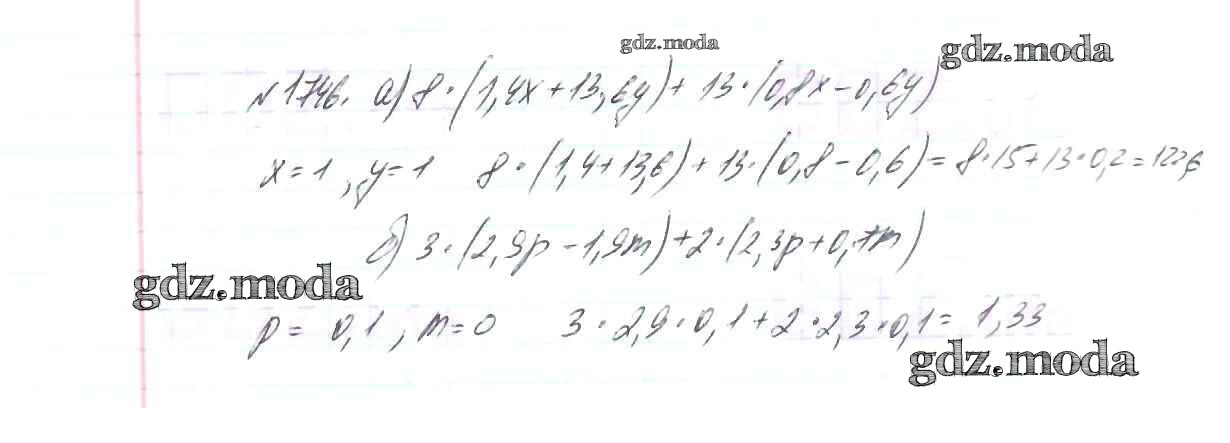 gdz.moda
gdz.moda
№1746. а) 8·(1,4x+13,6y)+13·(0,8x-0,6y)
x=1, y=1 8·(1,4+13,6)+13·(0,8-0,6)=8·15+13·0,2=122,6
б) 3·(2,9p-1,9m)+2·(2,3p+0,7m)
gdz.moda
p=0,1, m=0 3·2,9·0,1+2·2,3·0,1=1,33
gdz.moda